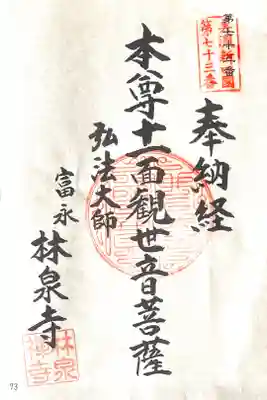 第七十三番
奉納経
本尊十一面観世音菩薩
弘法大師
富永
林泉寺
林泉
禅寺
73